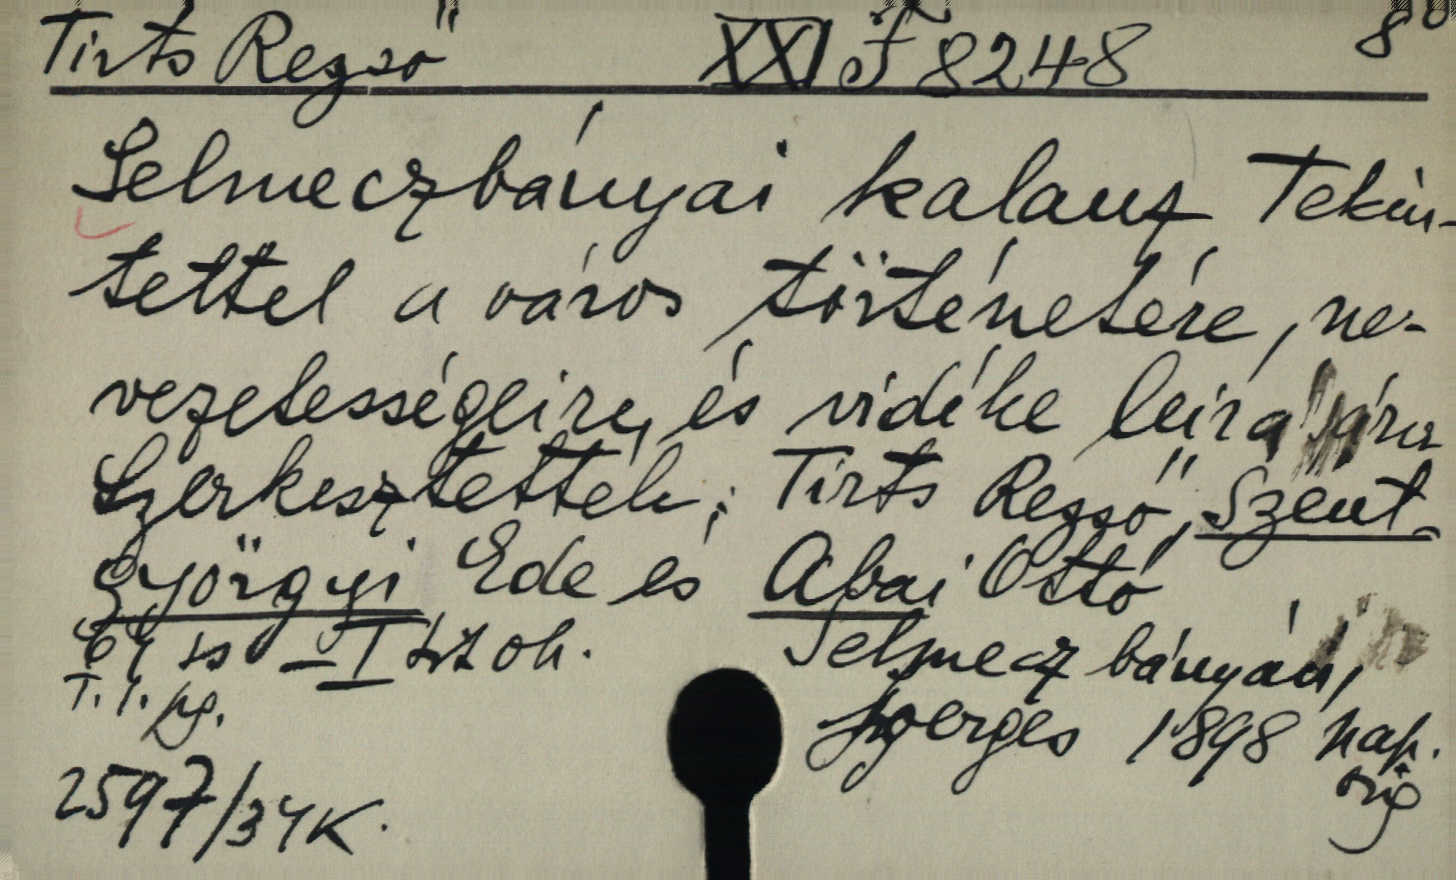 Tirts Rezső XXI F 8248 8°
Selmeczbányai kalauz Tekin-
tettel a város történetére, ne-
vezetességeire, és vidéke leirására
Szerkesztették; Tirts Rezső, Szent-
györgyi Ede és Abai Ottó
64 ss – I tit oh. Selmeczbányán,
T. I. pg. Joerges 1898 nap.
2597/34K.